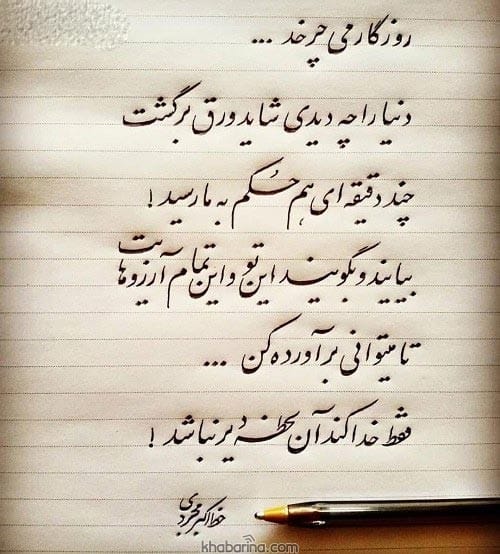 روزگار می چرخد ...
دنیا را چه دیدی شاید ورق برگشت
چند دقیقه ای هم حکم به ما رسید !
بیایند و بگویند این تو و این تمام آرزوهایت
تا میتوانی برآورده کن ...
فقط خدا کند آن لحظه دیر نباشد !
خط اکبر
khabarina.com